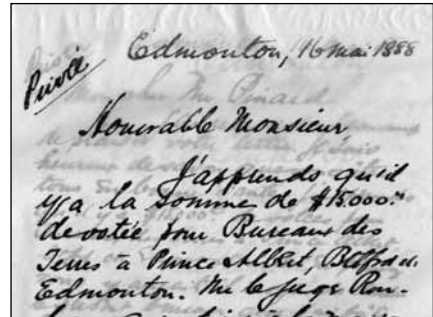 Edmonton, 16 mai 1888
Privée
Honorable Monsieur
J'apprends qu'il
y a la somme de $15.000.00
de votée pour Bureaux des
Terres à Prince Albert, et
Edmonton. Mr le juge Rou-